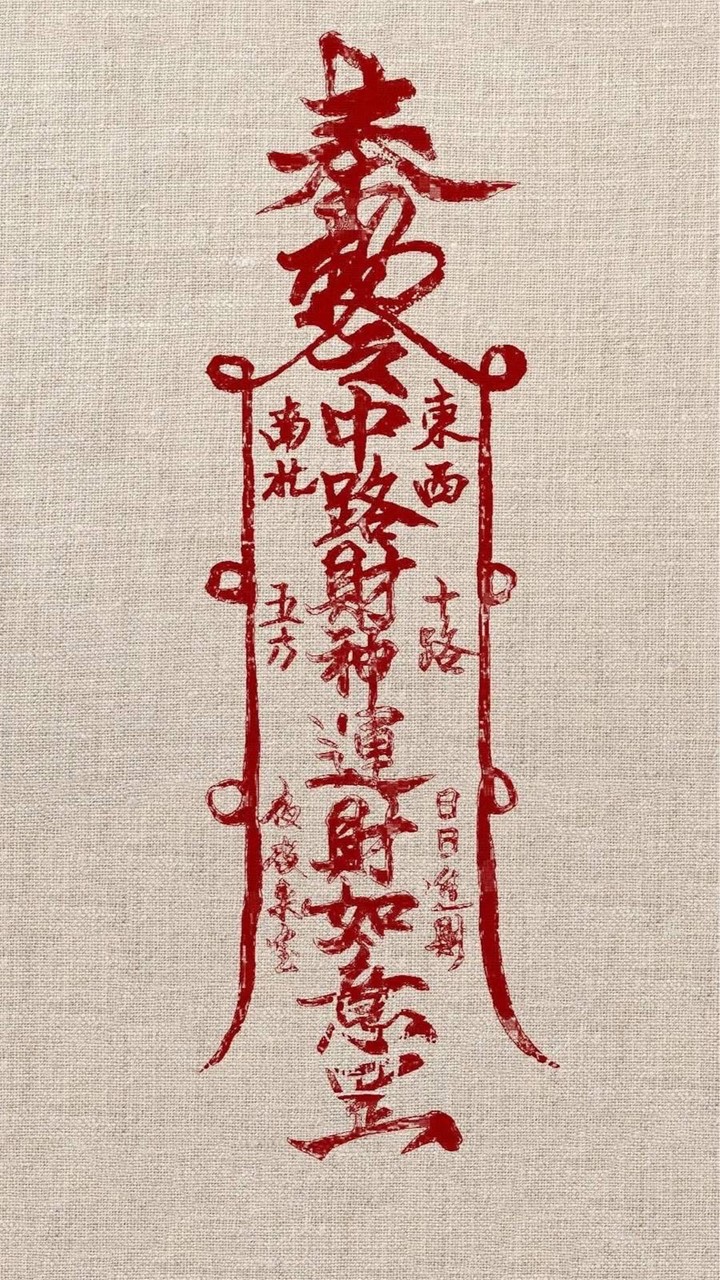 奉勅令中路財神運財如意罡
東西
南北
十路
五方
日日進財
夜夜來寶